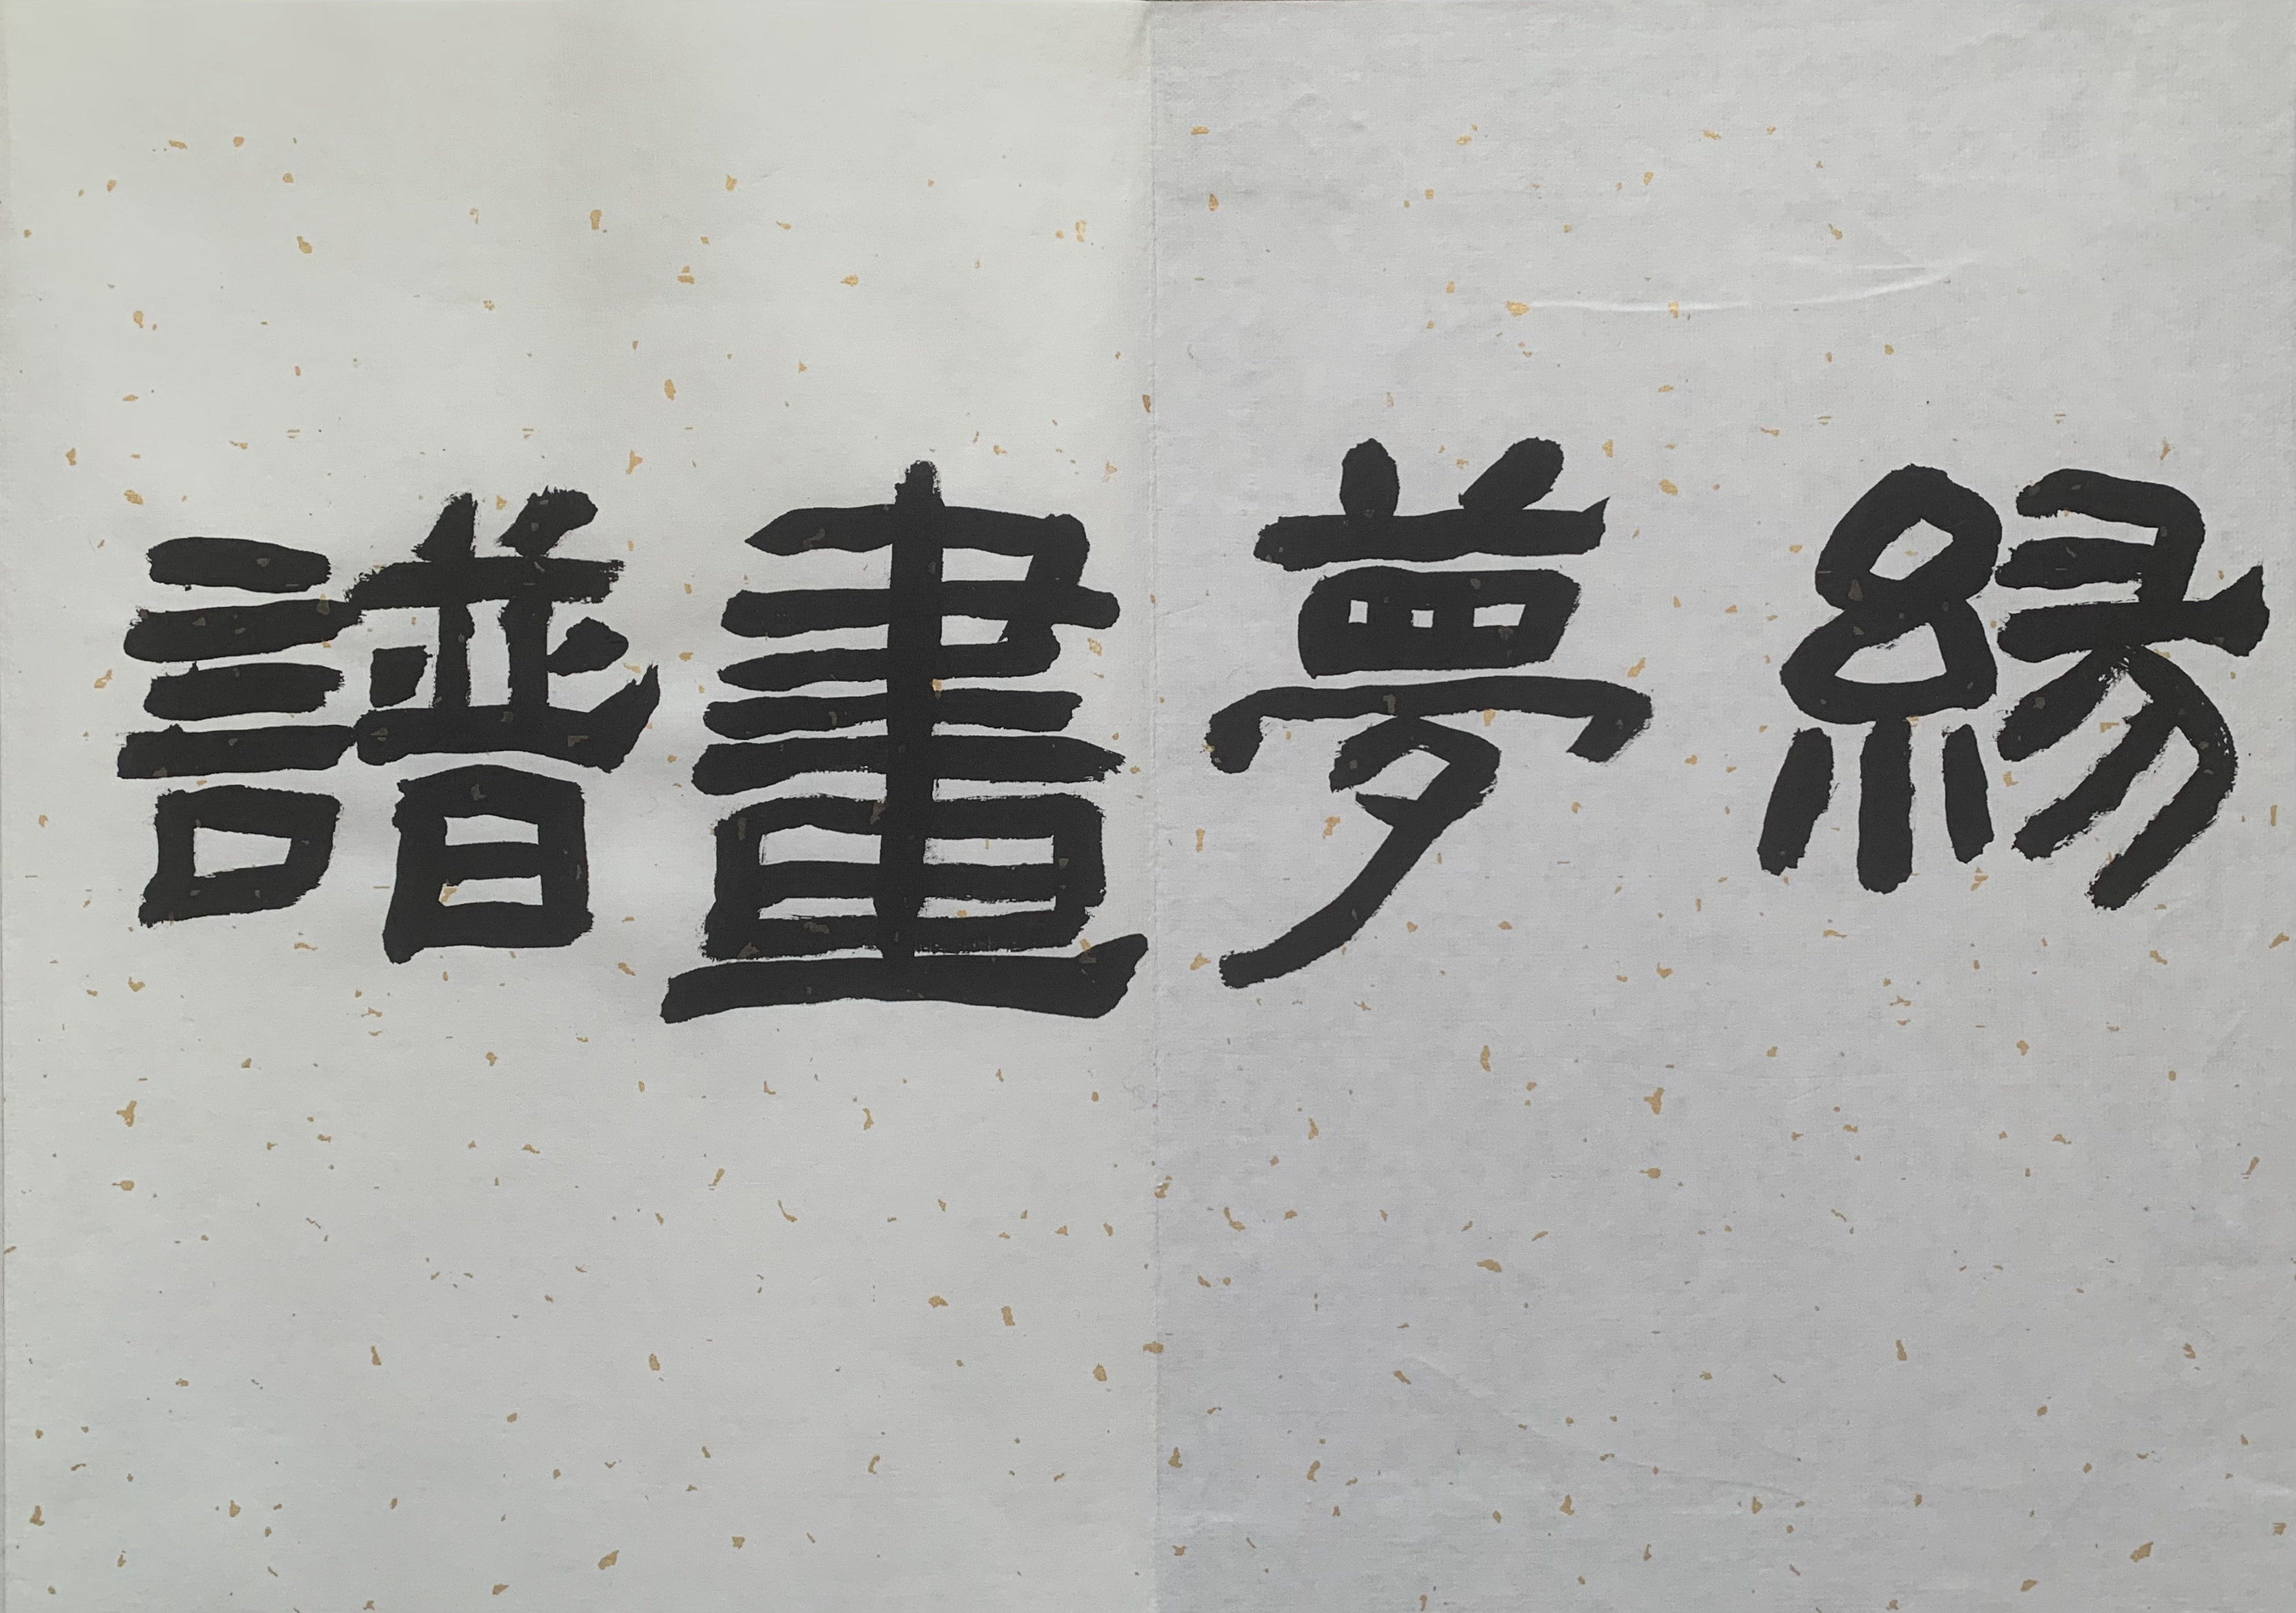 緣夢畫譜